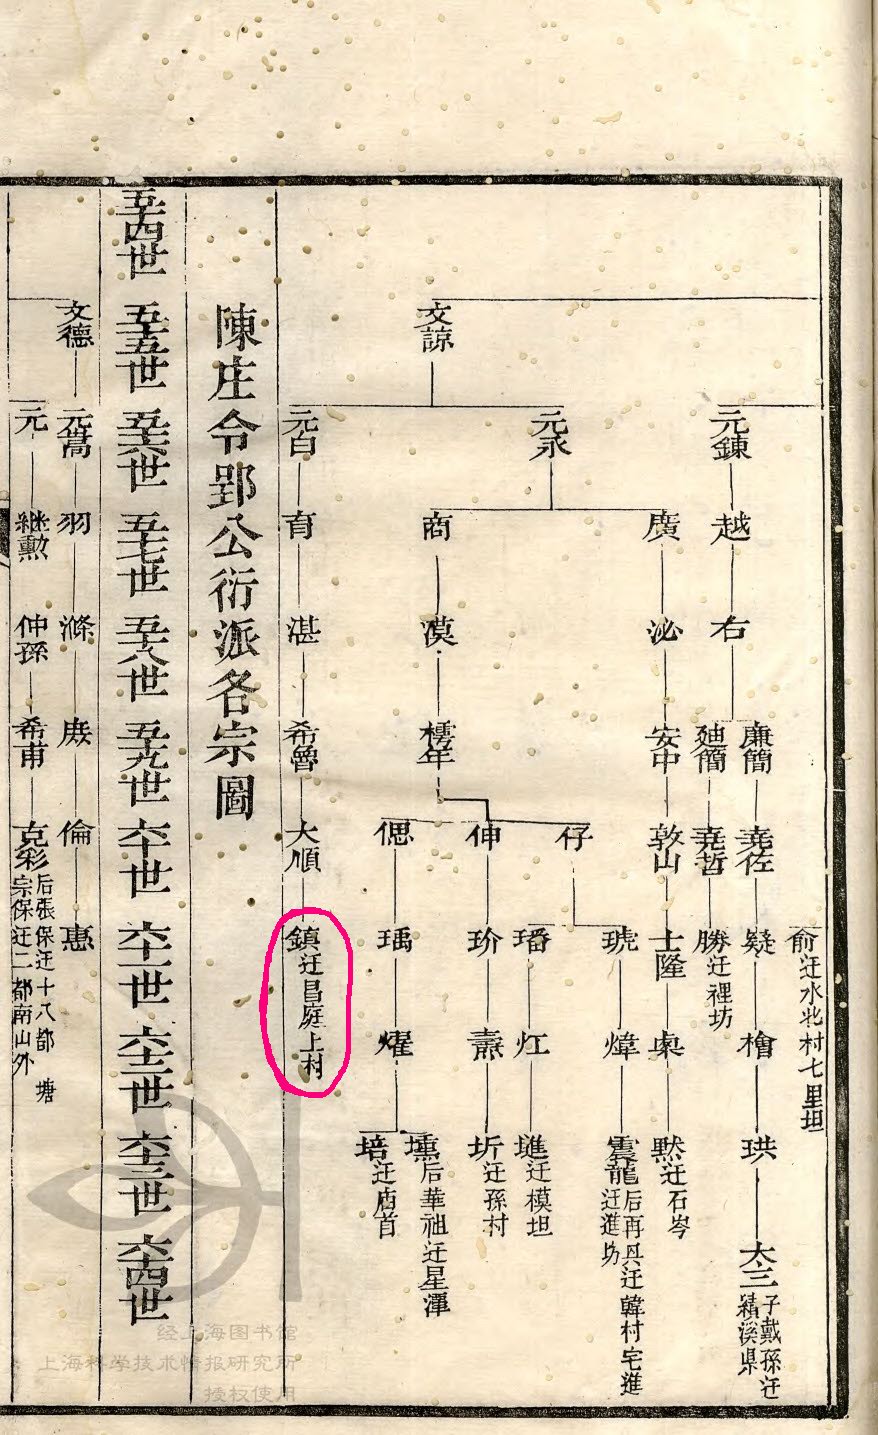 俞迁水北村七里坦
元鍊
越
右
廉簡
堯佐
疑
檜
珙
大三子戴孫迁績溪県
廸簡
堯哲
勝迁裡坊
文諒
元永
廣
泌
安中
敦山
士隆
桌
黙迁石岑
商
漠
樗年
仔
琥
煒
震龍后再具迁韓村宅進迁進坊
璠
灴
璡迁模坦
伸
玠
燾
圻迁孫村
偲
瑀
燿
壎后華祖迁星潭
培迁庙首
元白
育
湛
希魯
大順
鎮迁昌庭上村
陳庄令郢公衍派各宗圖
五十四世
五十五世
五十六世
五十七世
五十八世
五十九世
六十世
六十一世
六十二世
六十三世
六十四世
文德
元暠
羽
滌
庻
倫
惠
元
継勲
仲孫
希甫
克彩后張保迁十八都 塘宗保迁二都南山外
经上海图书馆
上海科学技术情报研究所
授权使用